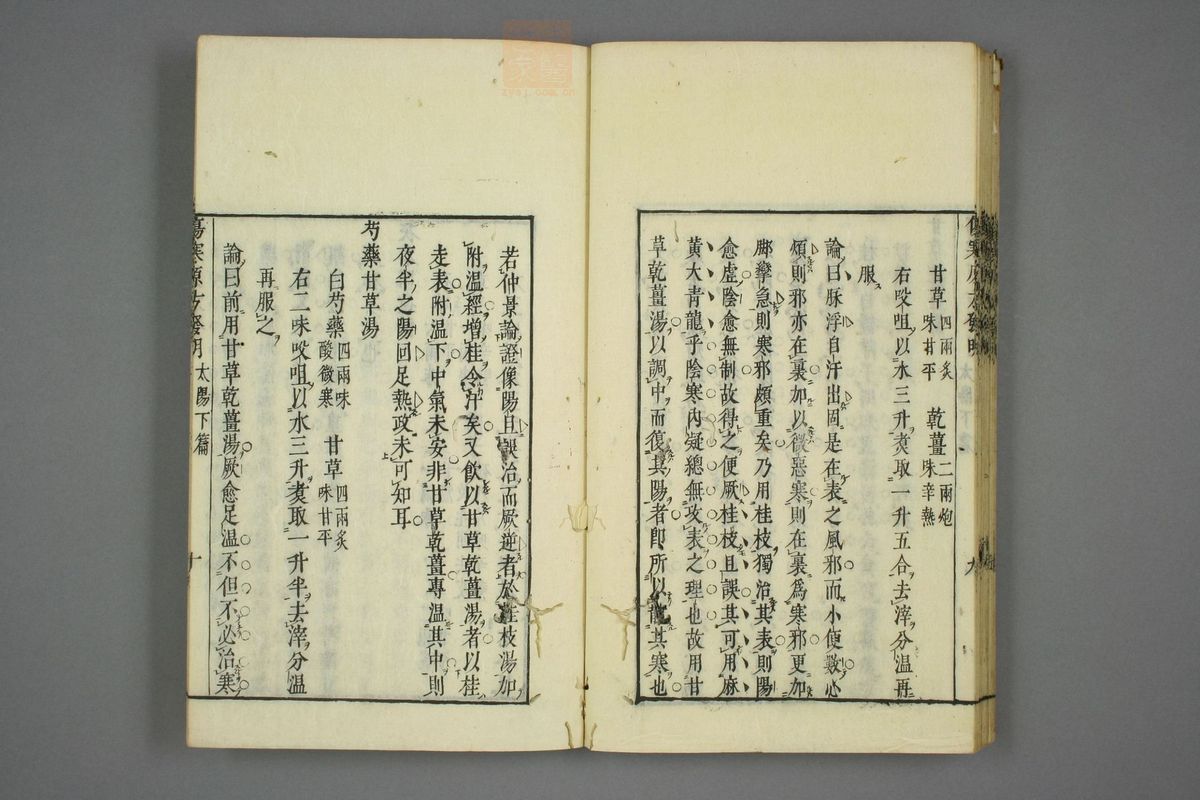 甘草四兩炙味甘平 乾薑二兩炮味辛熱
右㕮咀以水三升煑取一升五合去滓分温再
服
論曰脉浮自汗出固是在表之風邪而小便數心
煩則邪亦在裏加以微惡寒則在裏爲寒邪更加
脚攣急則寒邪頗重矣乃用桂枝獨治其表則陽
愈虚陰愈無制故得之便厥桂枝且誤其可用麻
黄大青龍乎陰寒内凝總無攻表之理也故用甘
草乾薑湯以調中而復其陽者即所以散其寒也
九
若仲景論證像陽旦誤治而厥逆者於桂枝湯加
附温經增桂令汗矣又飲以甘草乾薑湯者以桂
走表附温下中氣未安非甘草乾薑專温其中則
夜半之陽回足熱政未可知耳
芍藥甘草湯
白芍藥四兩味酸微寒 甘草四兩炙味甘平
右二味㕮咀以水三升煑取一升半去滓分温
再服之
論曰前用甘草乾薑湯厥愈足温不但不必治寒
傷寒原方發明 太陽下篇 十
zysj.com.cn